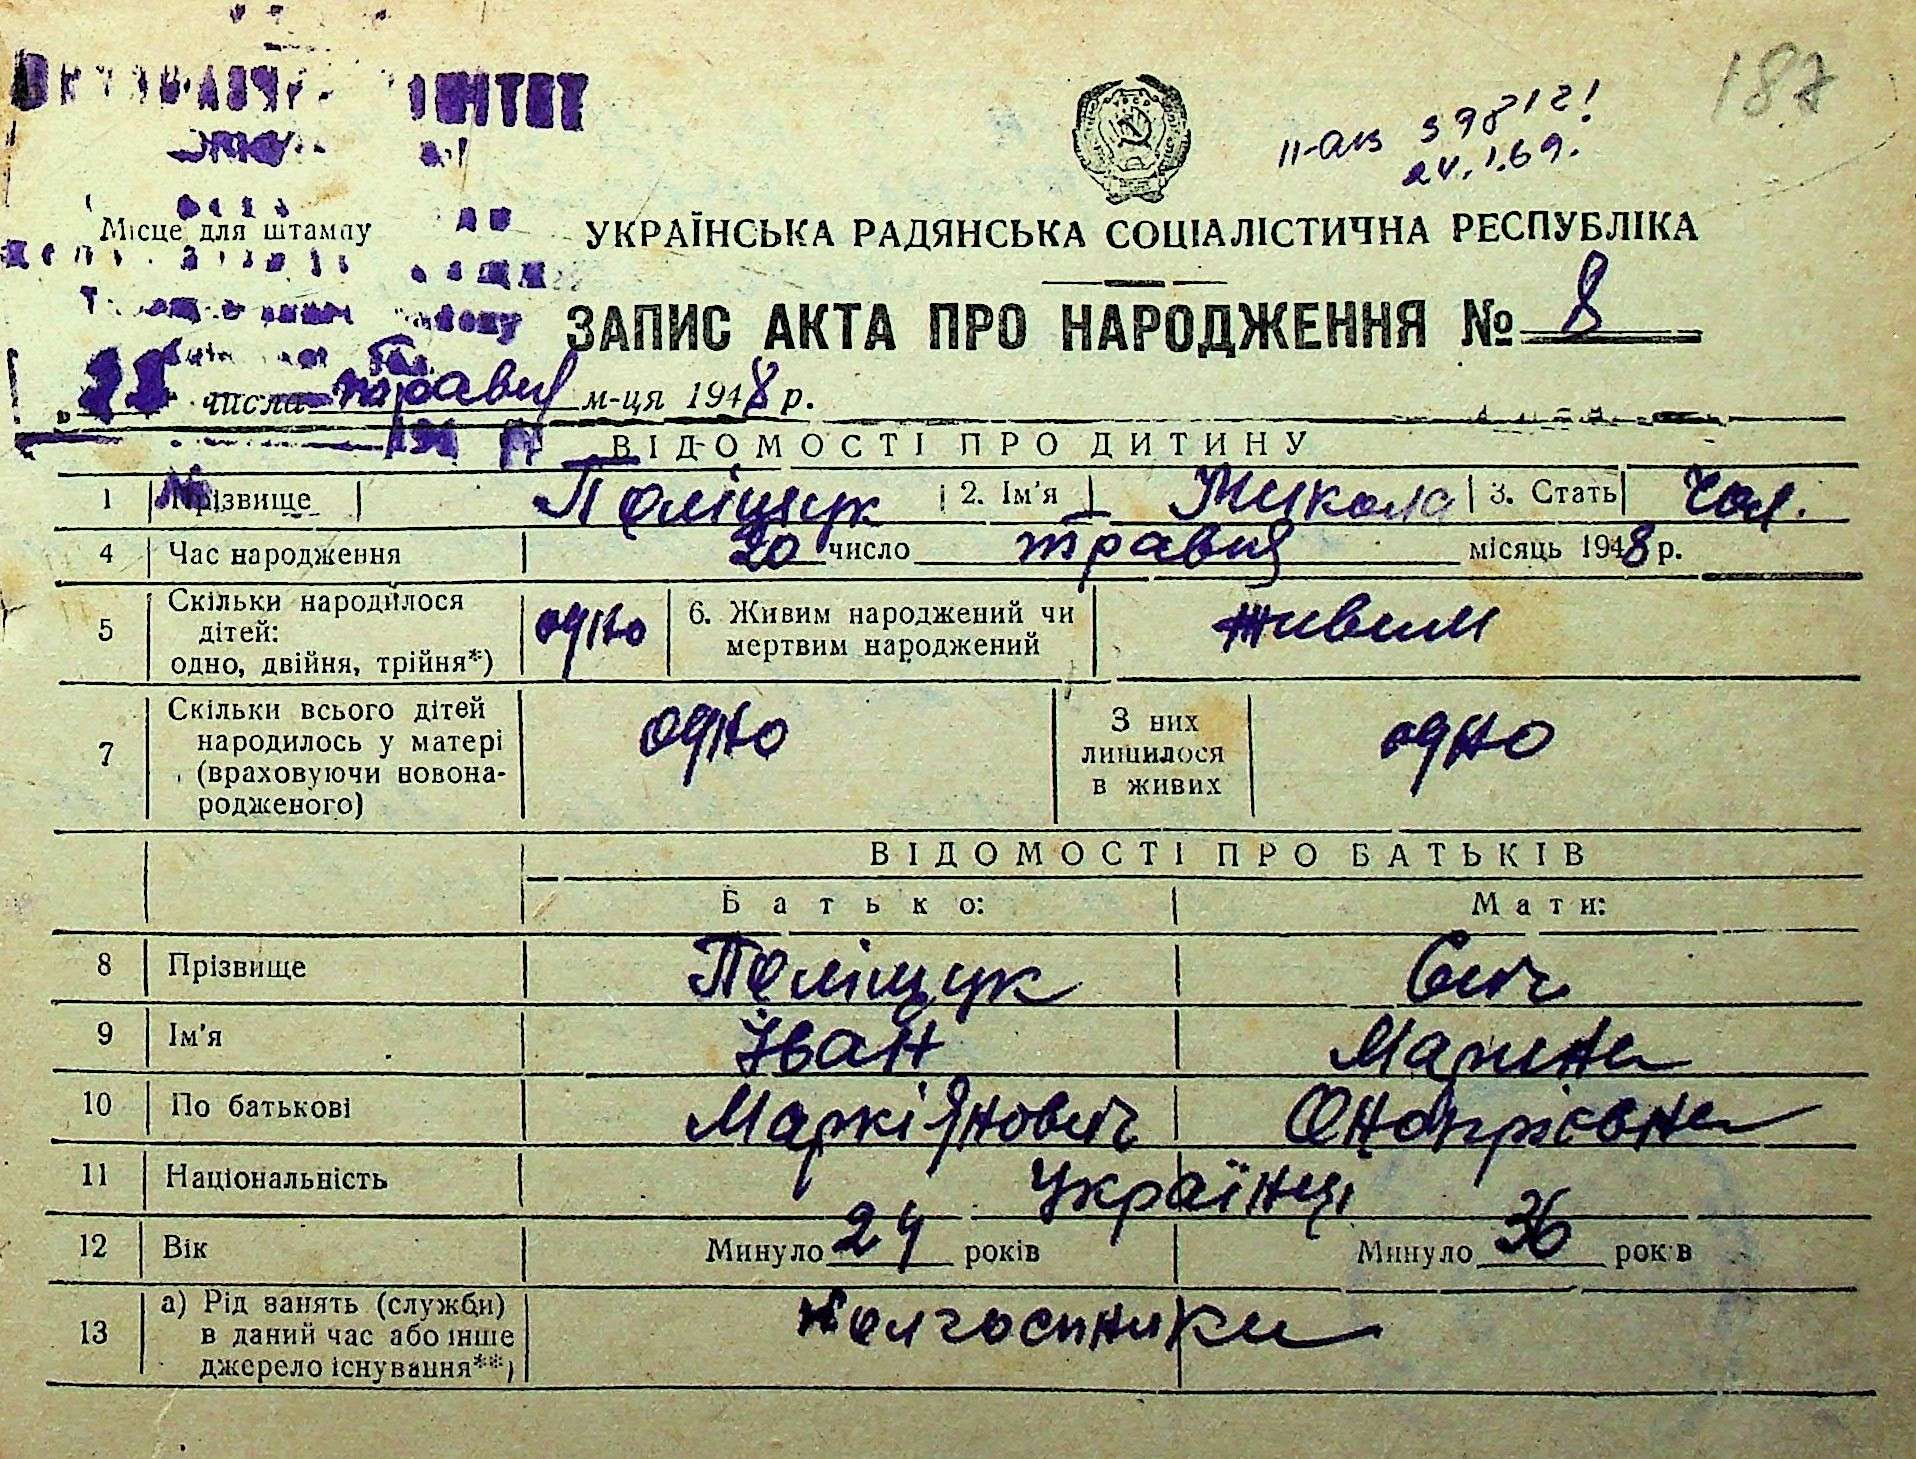 187
II-АПЗ 398121
24.I.69.
Місце для штампу
УКРАЇНСЬКА РАДЯНСЬКА СОЦІАЛІСТИЧНА РЕСПУБЛІКА
ЗАПИС АКТА ПРО НАРОДЖЕННЯ № 8
числа травня м-ця 1948 р.
ВІДОМОСТІ ПРО ДИТИНУ
1 Прізвище Поліщук 2. Ім'я Микола 3. Стать Чол.
4 Час народження 20 число травня місяць 1948 р.
5 Скільки народилося дітей: одно, двійня, трійня*) одно 6. Живим народжений чи мертвим народжений живим
7 Скільки всього дітей народилось у матері (враховуючи новонародженого) одно З них лишилося в живих одно
ВІДОМОСТІ ПРО БАТЬКІВ
Батько: Мати:
8 Прізвище Поліщук Сич
9 Ім'я Іван Марина
10 По батькові Маркіянович Онопрієвна
11 Національність Українці
12 Вік Минуло 24 років Минуло 36 років
13 а) Рід занять (служби) в даний час або інше джерело існування**) Колгоспники